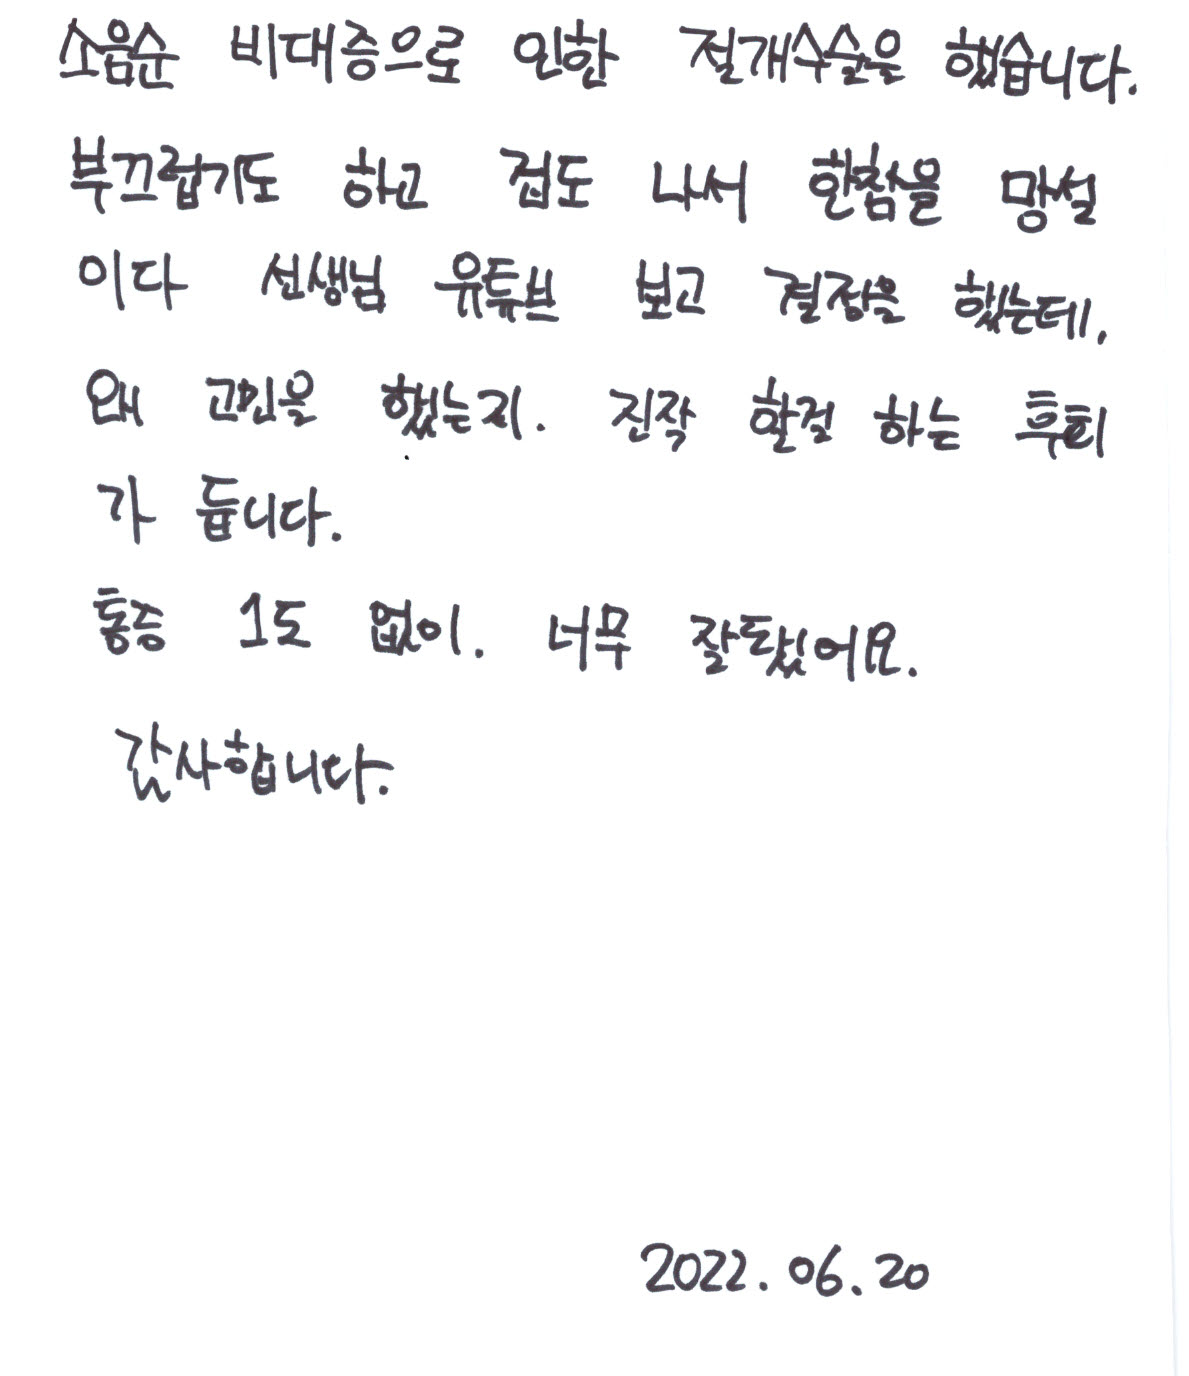 소음순 비대증으로 인한 절개수술을 했습니다.
부끄럽기도 하고 겁도 나서 한참을 망설
이다 선생님 유튜브 보고 결정을 했는데,
왜 고민을 했는지. 진작 할걸 하는 후회
가 듭니다.
통증 1도 없이. 너무 잘됐어요.
감사합니다.
2022. 06. 20